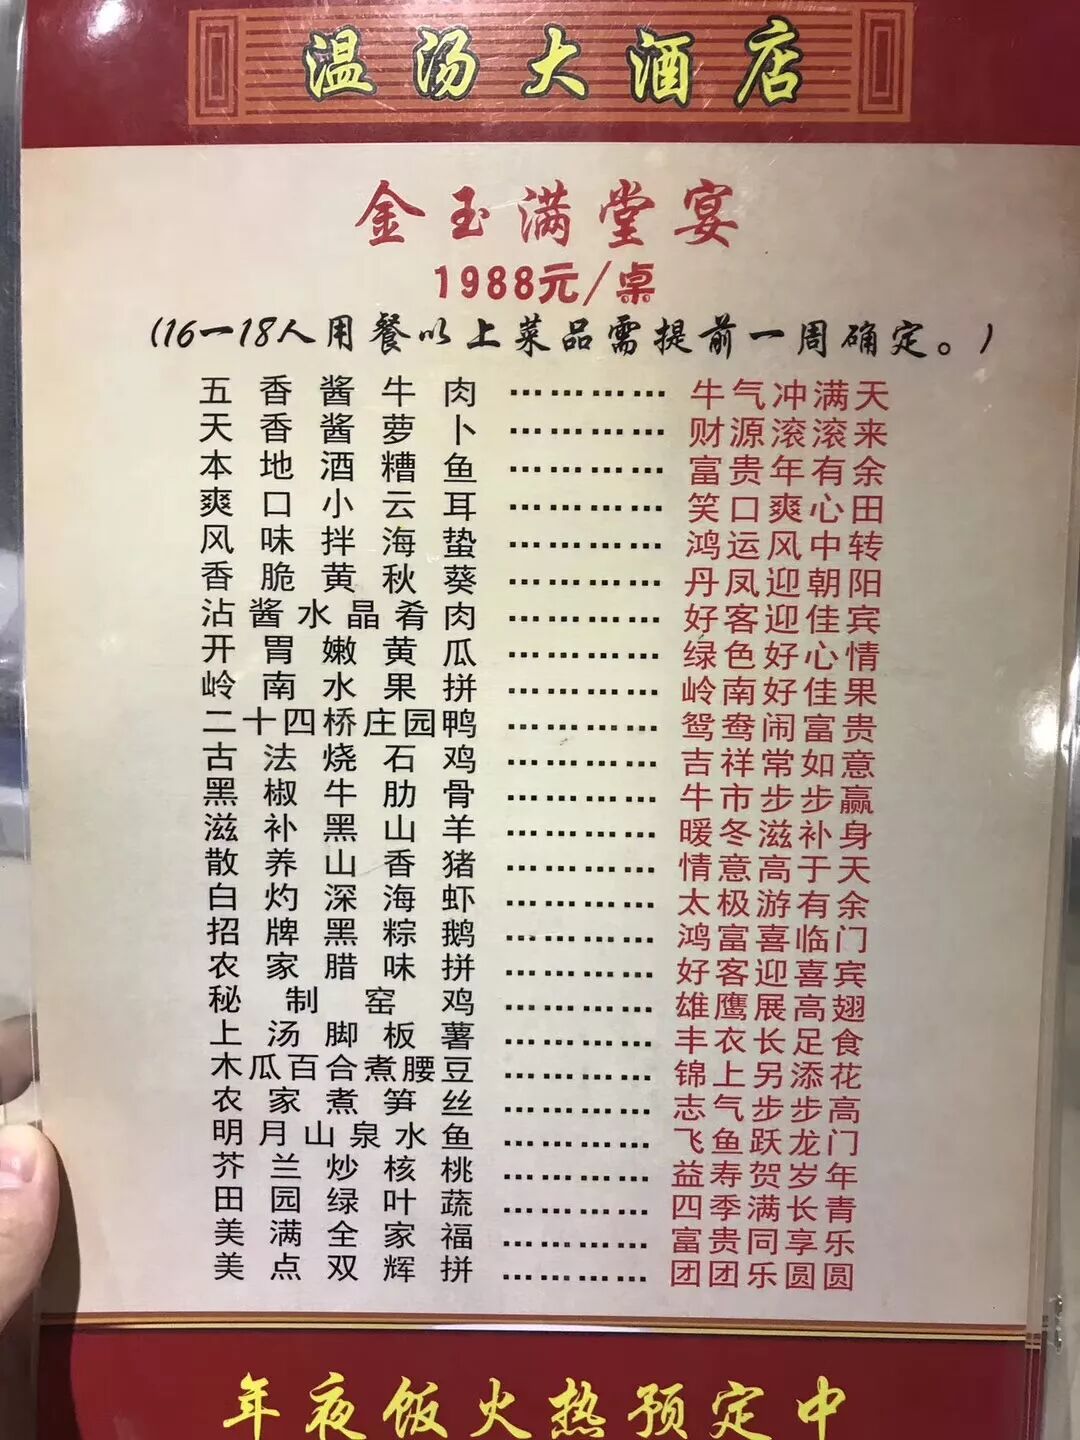 温汤大酒店
金玉满堂宴
1988元/桌
(16一18人用餐以上菜品需提前一周确定。)
五香酱牛肉………………牛气冲满天
天香酱萝卜………………财源滚滚来
本地酒糟鱼………………富贵年有余
爽口小云耳………………笑口爽心田
风味拌海蛰………………鸿运风中转
香脆黄秋葵………………丹凤迎朝阳
沾酱水晶肴肉………………好客迎佳宾
开胃嫩黄瓜………………绿色好心情
岭南水果拼………………岭南好佳果
二十四桥庄园鸭………………鸳鸯闹富贵
古法烧石鸡………………吉祥常如意
黑椒牛肋骨………………牛市步步赢
滋补黑山羊………………暖冬滋补身
散养山香猪………………情意高于天
白灼深海虾………………太极游有余
招牌黑粽鹅………………鸿富喜临门
农家腊味拼………………好客迎喜宾
秘制窑鸡………………雄鹰展高翅
上汤脚板薯………………丰衣长足食
木瓜百合煮腰豆………………锦上另添花
农家煮笋丝………………志气步步高
明月山泉水鱼………………飞鱼跃龙门
芥兰炒核桃………………益寿贺岁年
田园绿叶蔬………………四季满长青
美满全家福………………富贵同享乐
美点双辉拼………………团团乐圆圆
年夜饭火热预定中